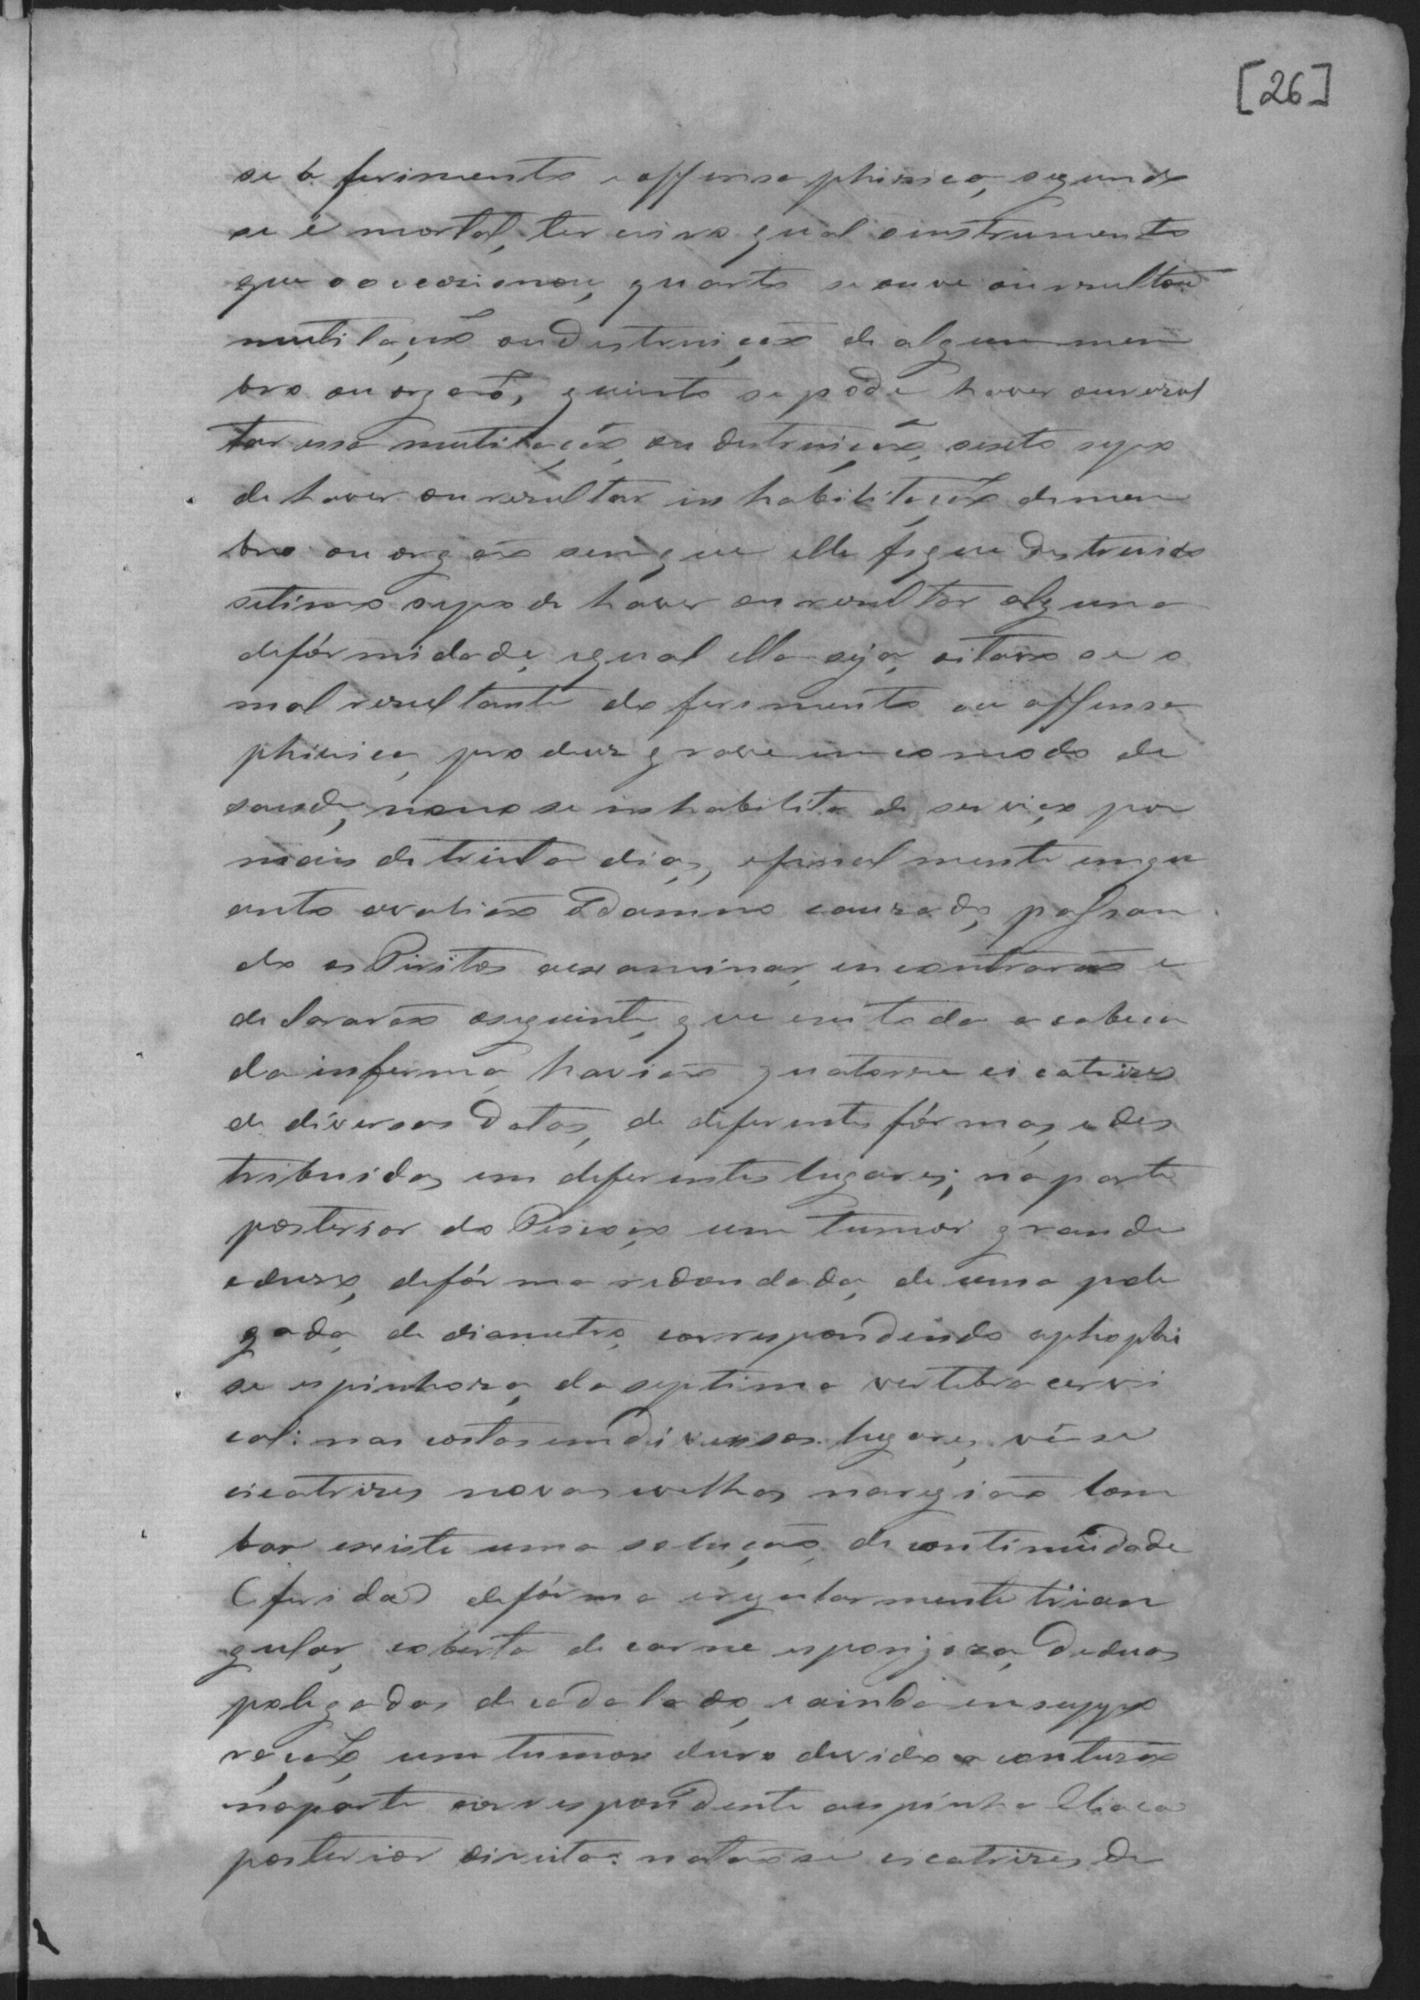 [26]
se há ferimento e offensa phizica, segundo
se é mortal, terceiro qual o instrumento
que o occazionou, quarto se ouve ou resultou
mutilação ou destruição de algum mem
bro ou orgaõ, quinto se póde haver ou resul
tar essa mutilação ou destruição, sexto se po
de haver ou rezultar inhabilitação de mem
bro ou orgaõ sem que elle fique destruido
setimo se pode haver ou rezultar alguma
defórmidade, e qual ella seja, oitavo se o
mal rezultante do ferimento ou offensa
phizica, produz grave incomodo de
saude, nono se inhabilita de serviço por
mais de trinta dias, e finalmente em qu
anto avaliaõ o damno cauzado, passan
do os Piritos a examinar, encontraraõ e
declararaõ o seguinte, que em toda a cabeca
da inferma, haviaõ quatorze cicatrizes
de díversas datas, de diferentes fórmas, e des
tribuidas em deferentes lugares; na parte
posterior do Pescoço um tumor grande
e duro, de fórma redondada, de uma pole
gada de diametro, correspondendo aphophi
se espinhoza, da septima vertebra cervi
cal: nas costas em díversos lugares, vê-se
cicatrizes novas e velhas na regiaõ lom
bar existe uma solução de continüidade
(ferida) de fórma irregularmente trian
gular, coberta de carne esponjoza, de duas
polegadas de cada lado, e ainda em suppu
ração, um tumor duro devido a contuzaõ
na parte correspondente a espinha Iliaca
posterior direita: notaõ-se cicatrizes de